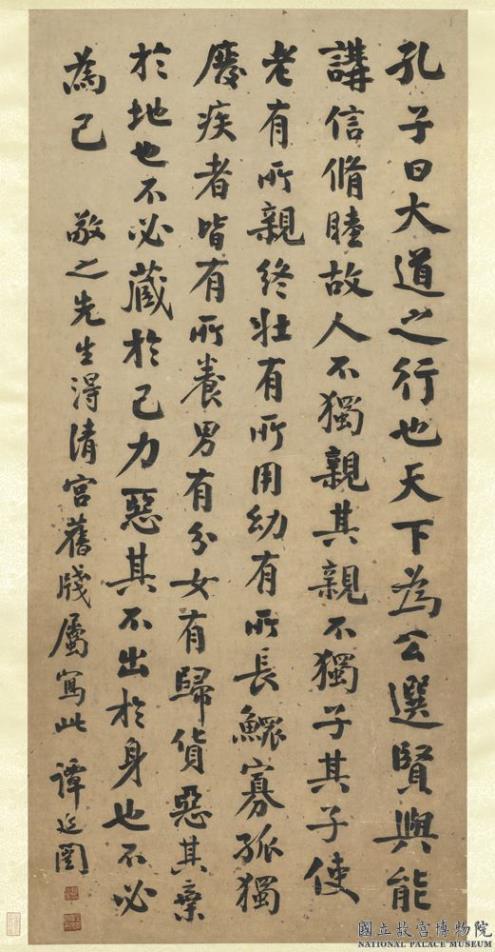 孔子曰大道之行也天下為公選賢與能
講信脩睦故人不獨親其親不獨子其子使
老有所親終壯有所用幼有所長鰥寡孤獨
廢疾者皆有所養男有分女有歸貨惡其棄
於地也不必藏於己力惡其不出於身也不必
為己 敬之先生得清宮舊牋屬寫此 譚延闓
國立故宮博物院
NATIONAL PALACE MUSEUM